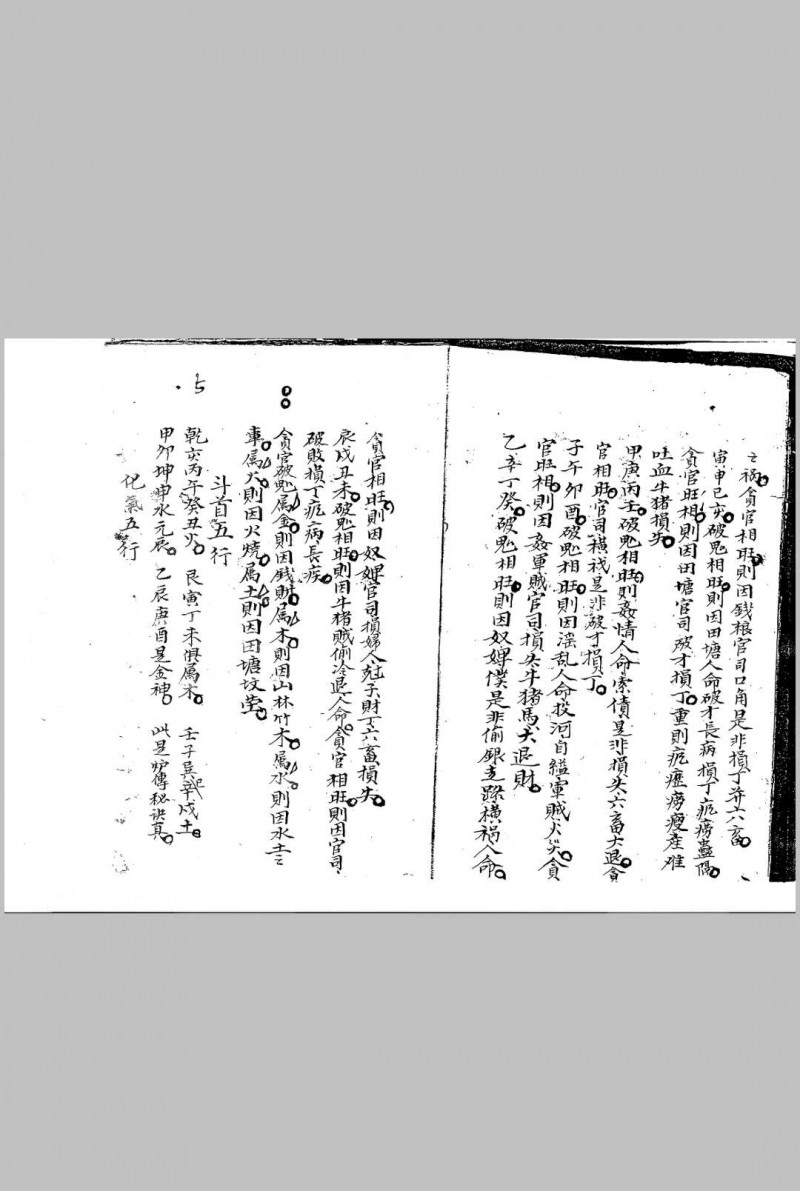 㠯祸。貪官相旺。則因銭粮官司口角是非損丁并六畜。
寅申巳亥。破鬼相旺。則因田塘人命破才長病損丁疕痨蠱隔。
貪官旺相。則因田塘官司破才損丁。重則疕瘂痨瘦産难
吐血牛猪損失。
甲庚丙壬。破鬼相旺。則姦情人命索債是非損失六畜大退。貪
官相旺。官司横禍是非破才損丁。
子午卯酉。破鬼相旺。則因滛乱人命投河自縊軍賊火災。貪
官旺相。則因姦軍賊官司損失牛猪馬大退財。
乙辛丁癸。破鬼相旺。則因奴婢僕是非偷銀走踪横祸人命。
貪官相旺。則因奴婢官司損婦人尅子財丁六畜損失。
辰戌丑未。破鬼相旺。則因牛猪賊偷冷退人命。貪官相旺。則因官司、
破敗損丁疕病長疾。
貪官破鬼属金。則因銭財。属木。則因山林竹木。属水。則因水土
車。属火。則因火燒。属土。則因田塘坟茔。
斗首五行
乾亥丙午癸丑火。艮寅丁未俱属木。壬子巽辛戌土。
甲卯坤申水元辰。乙辰庚酉是金神。此是炉傳秘訣真。
化氣五行
5